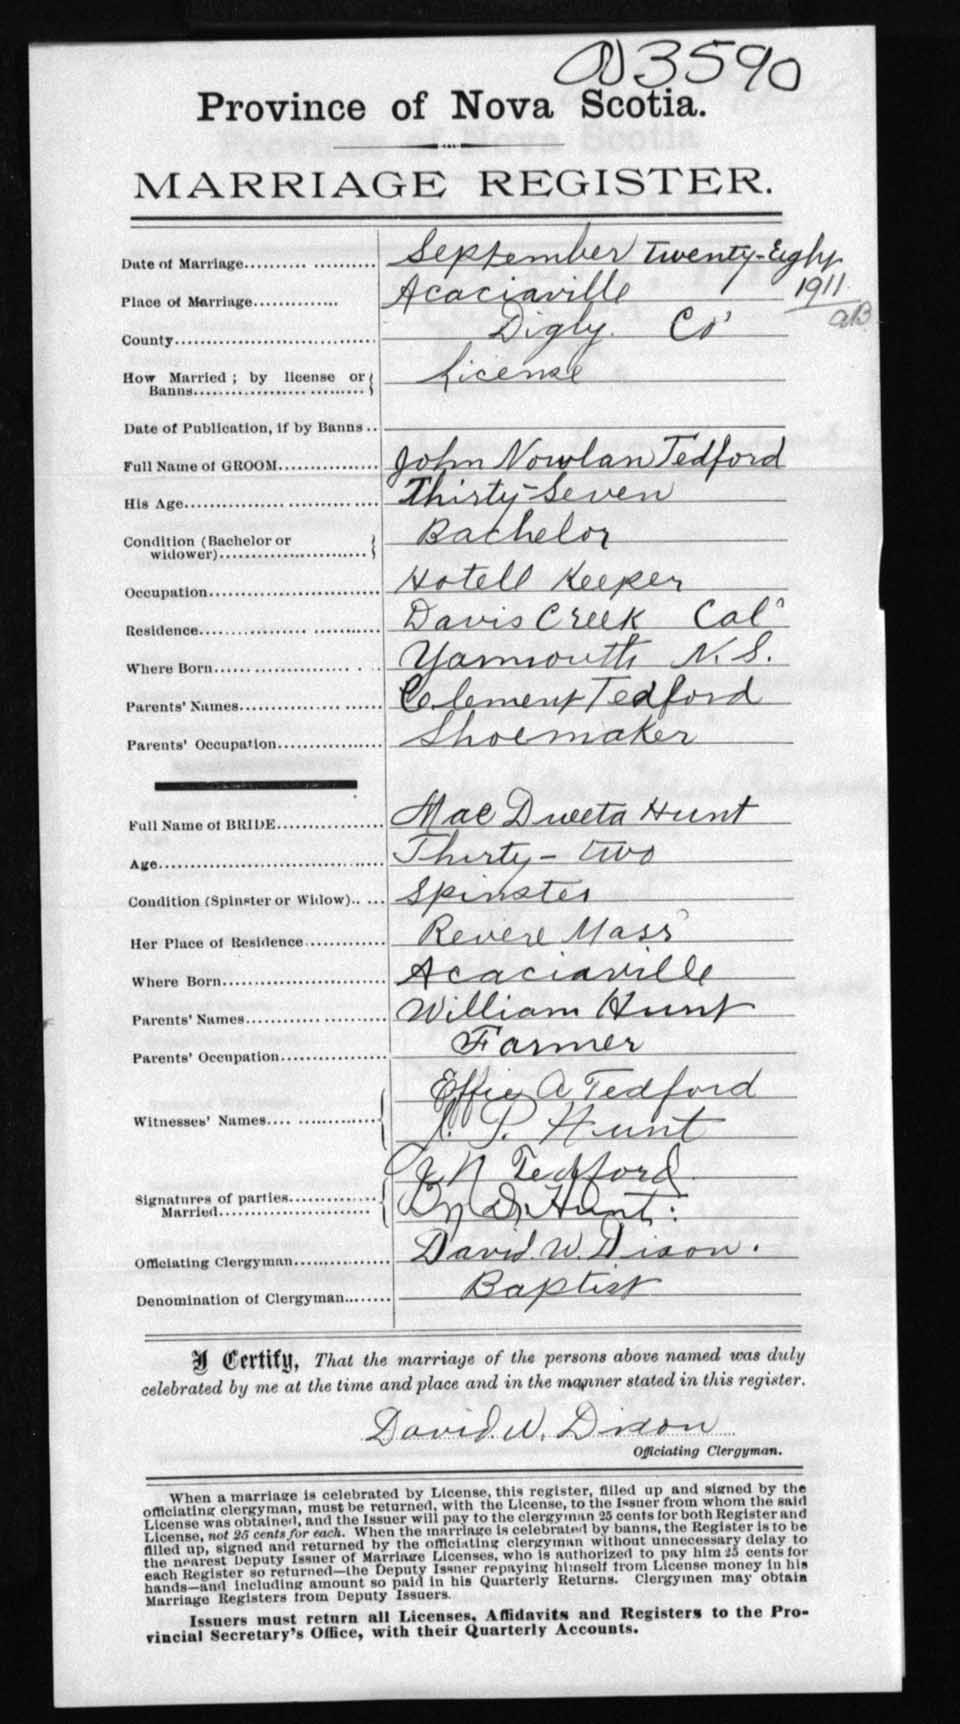 3590
Province of Nova Scotia.
MARRIAGE REGISTER.
Date of Marriage........ September Twenty-Eight
1911
Place of Marriage........ Acaciaville
County........ Digby. Co'
How Married ; by license or
Banns........ License
Date of Publication, if by Banns ..
Full Name of GROOM........ John Nowlan Tedford
His Age........ Thirty-Seven
Condition (Bachelor or
widower)........ Bachelor
Occupation........ Hotell Keeper
Residence........ Davis Creek Cal'
Where Born........ Yarmouth N.S.
Parents' Names........ Clement Tedford
Parents' Occupation........ Shoemaker
Full Name of BRIDE........ Mae Hunt
Age........ Thirty-two
Condition (Spinster or Widow)..... Spinster
Her Place of Residence........ Revere Mass'
Where Born........ Acaciaville
Parents' Names........ William Hunt
Parents' Occupation........ Farmer
Witnesses' Names........ Effie A Tedford
Hunt
Signatures of parties
Married........ J N Tedford
M D Hunt.
Officiating Clergyman........ David. W. Dixon.
Denomination of Clergyman....... Baptist
I Certify, That the marriage of the persons above named was duly
celebrated by me at the time and place and in the manner stated in this register.
David. W. Dixon
Officiating Clergyman.
When a marriage is celebrated by License, this register, filled up and signed by the
officiating clergyman, must be returned, with the License, to the Issuer from whom the said
License was obtained, and the Issuer will pay to the clergyman 25 cents for both Register and
License, not 25 cents for each. When the marriage is celebrated by banns, the Register is to be
filled up, signed and returned by the officiating clergyman without unnecessary delay to
the nearest Deputy Issuer of Marriage Licenses, who is authorized to pay him 25 cents for
each Register so returned—the Deputy Issuer repaying himself from License money in his
hands—and including amount so paid in his Quarterly Returns. Clergymen may obtain
Marriage Registers from Deputy Issuers.
Issuers must return all Licenses, Affidavits and Registers to the Pro-
vincial Secretary's Office, with their Quarterly Accounts.